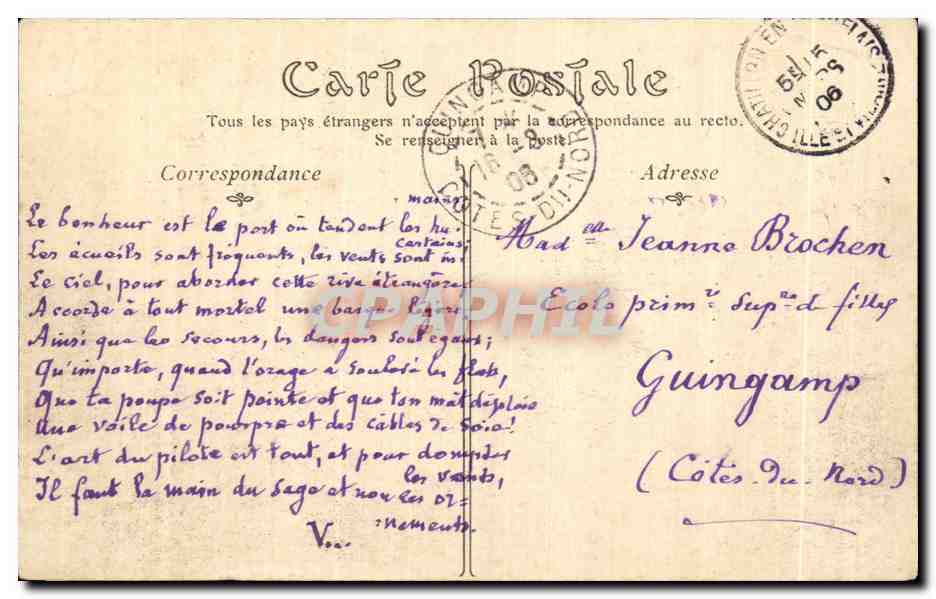 Carte Postale
Tous les pays étrangers n'acceptent par la correspondance au recto.
Se renseigner à la poste
Correspondance
Adresse
Le bonheur est le port où tendent les humains
Les écueils sont fréquents, les vents sont incertains;
Le ciel, pour aborder cette rive étrangère
Accorde à tout mortel une barque légère
Ainsi que les secours, les dangers sont égaux;
Qu'importe, quand l'orage a soulevé les flots,
Que ta poupe soit peinte et que ton mât déploie
Une voile de pourpre et des câbles de soie!
L'art du pilote est tout, et pour dompter les vents,
Il faut la main du sage et non les or-
nements.
V...
Mad elle Jeanne Brochen
Ecole prim re Sup re d. filles
Guingamp
(Côtes-du-Nord)
GUINGAMP
16 -8
06
COTES-DU-NORD
CHATILLON EN
ILLE
06
CPAPHIL